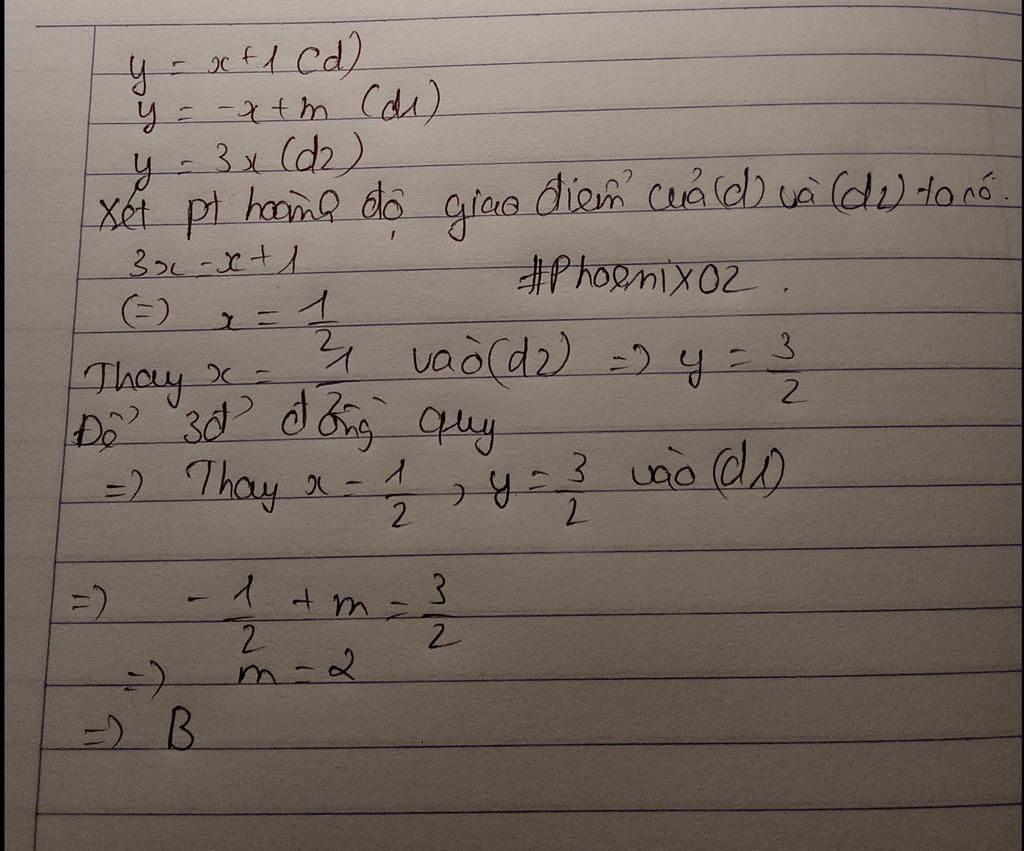 y = x+1 (d)
y = -x+m (d1)
y = 3x (d2)
Xét pt hoành độ giao điểm của (d) và (d2) ta có.
3x = x+1
#Phoenix02.
(=) x = 1/2
Thay x = 1/2 vào (d2) => y = 3/2
Để 3đt đồng quy
=) Thay x = 1/2, y = 3/2 vào (d1)
=) -1/2 + m = 3/2
=) m = 2
=) B